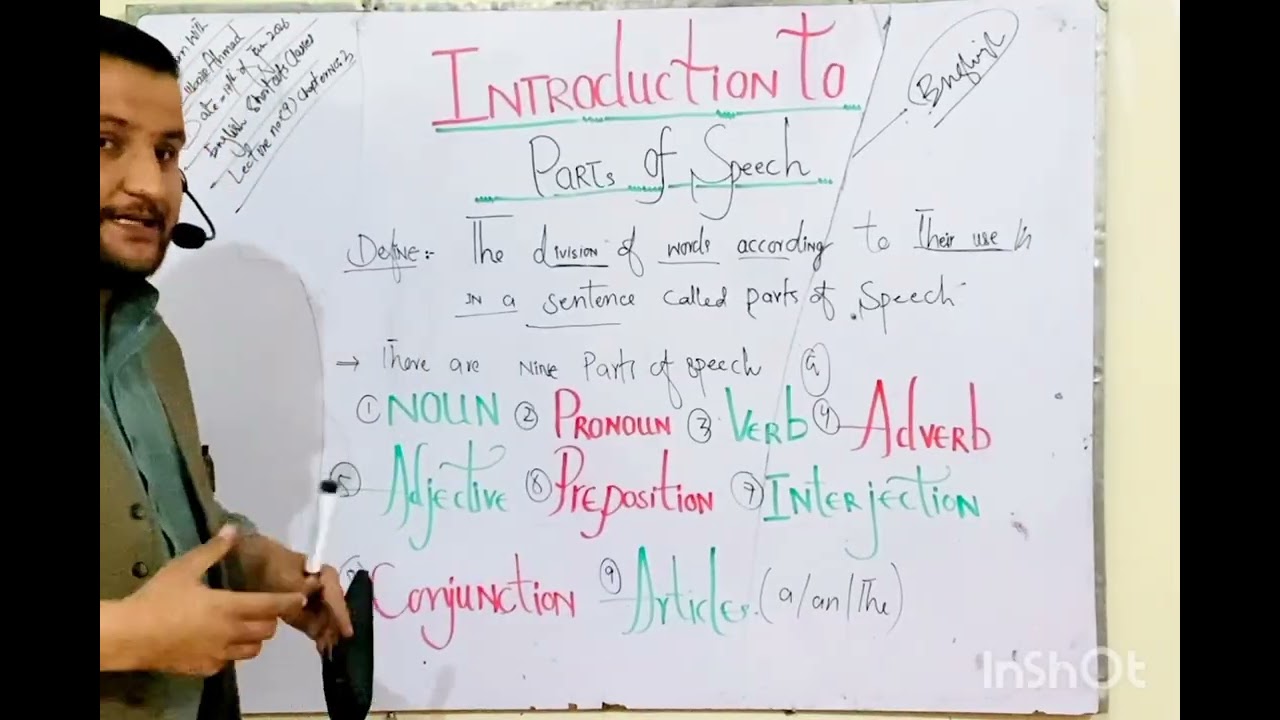 with
Ahmad
Date - 19th of Jan 2026
English Shortcuts Classes
Lecture no (9) Chapter No: 2
English
INTRODUCTION TO
PARTS of Speech
Define:- The division of words according to Their use in
IN a sentence called parts of Speech
→ There are NINE Parts of speech (9)
① NOUN ② PRONOUN ③ VERB ④ AdVERB
⑤ Adjective ⑥ PREPOSITION ⑦ INTERJECTION
Conjunction ⑨ Articles. (a/an/The)
InShOt